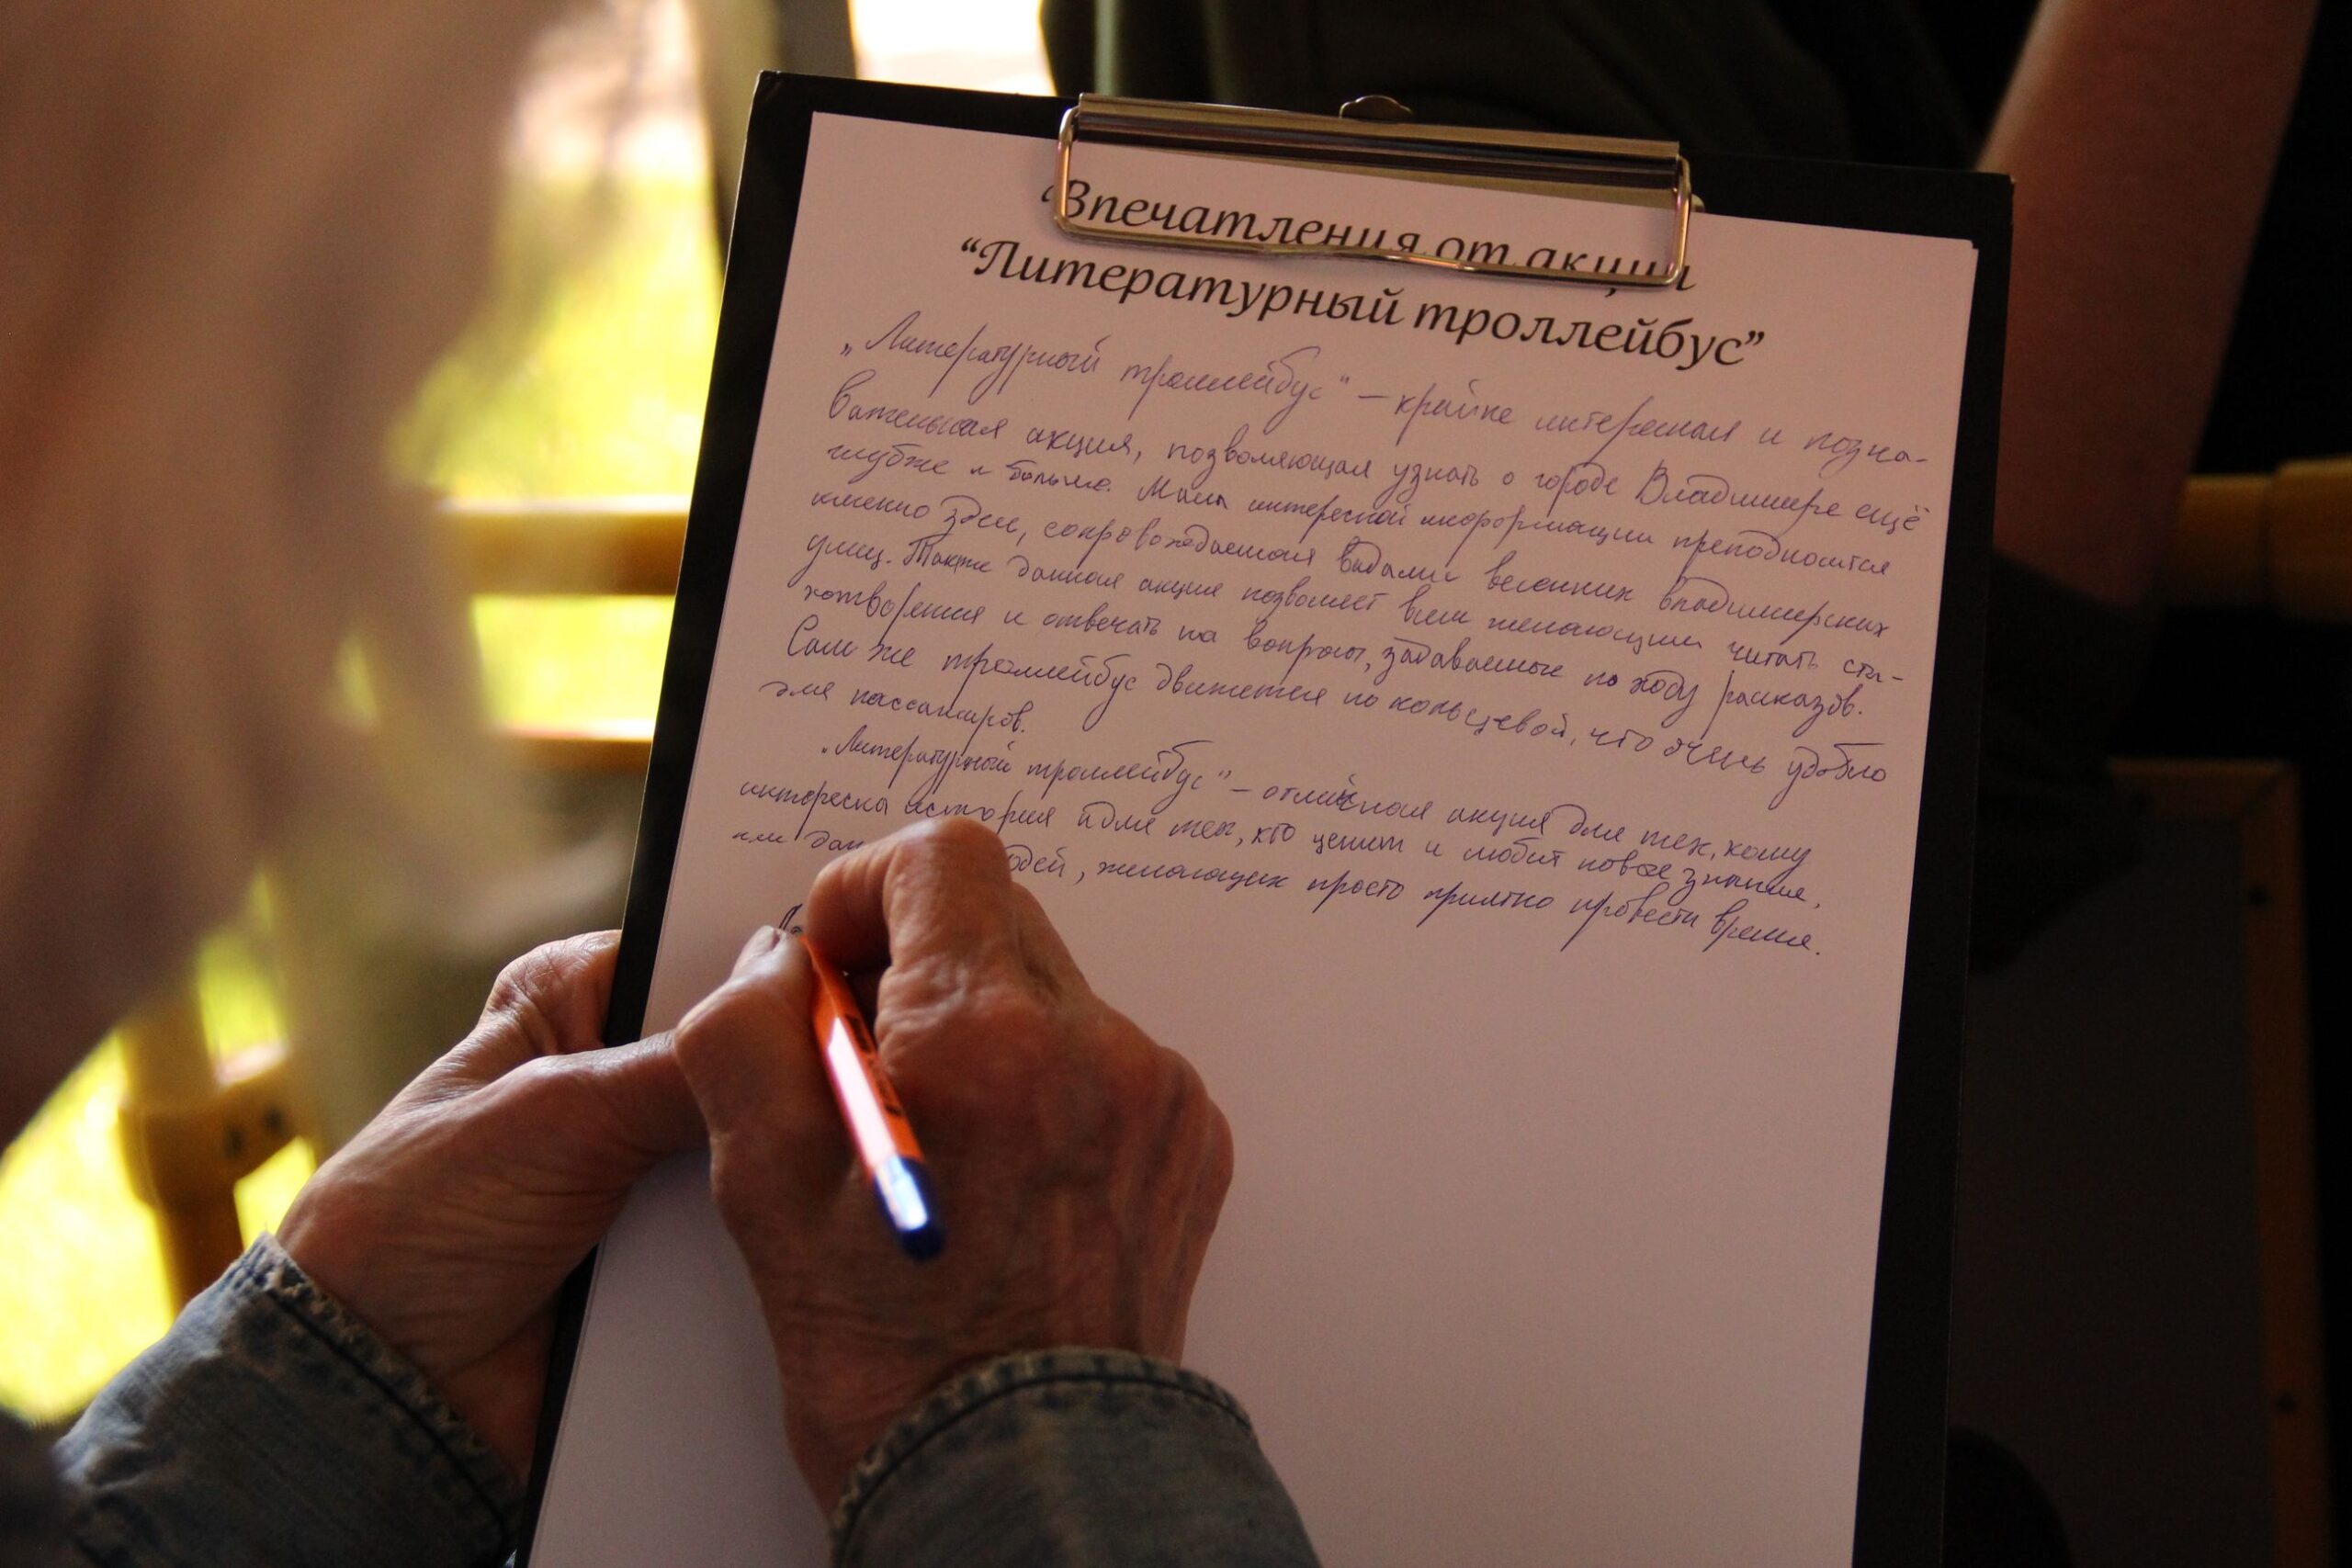 “Впечатления от акции
“Литературный троллейбус”
„Литературный троллейбус“ – крайне интересная и позна-
вательная акция, позволяющая узнать о городе Владимире ещё
глубже и больше. Масса интересной информации преподносится
именно здесь, сопровождаемая видами весенних владимирских
улиц. Также данная акция позволяет всем желающим читать сти-
хотворения и отвечать на вопросы, задаваемые по ходу рассказов.
Сам же троллейбус движется по кольцевой, что очень удобно
для пассажиров.
„Литературный троллейбус“ – отличная акция для тех, кому
интересна история для тех, кто ценит и любит новые знания,
или для людей, желающих просто приятно провести время.